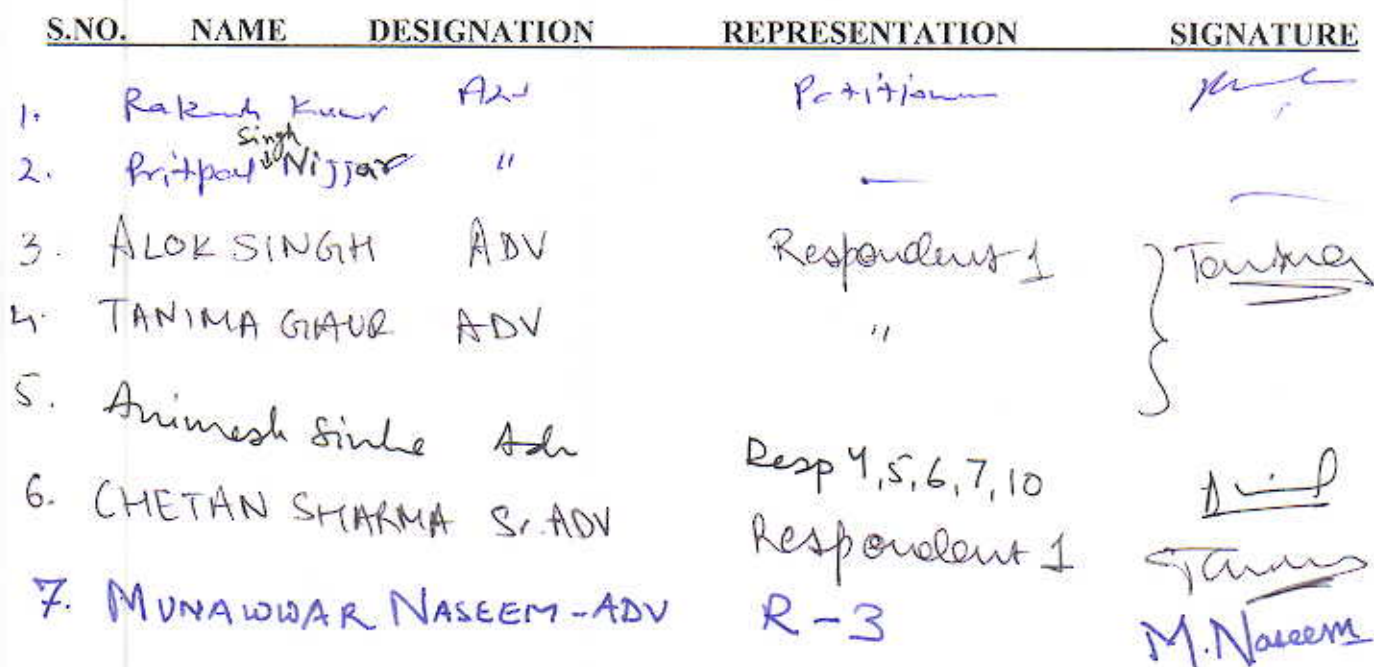 S.NO. NAME DESIGNATION REPRESENTATION SIGNATURE
1. Rakesh Kumar Adv Petitioner
2. Pritpal Singh Nijjar "
3. ALOK SINGH ADV Respondent 1 Tanima
4. TANIMA GAUR ADV "
5. Animesh Sinha Adv Resp 4,5,6,7,10
6. CHETAN SHARMA Sr. ADV Respondent 1
7. MUNAWWAR NASEEM - ADV R-3 M.Naseem